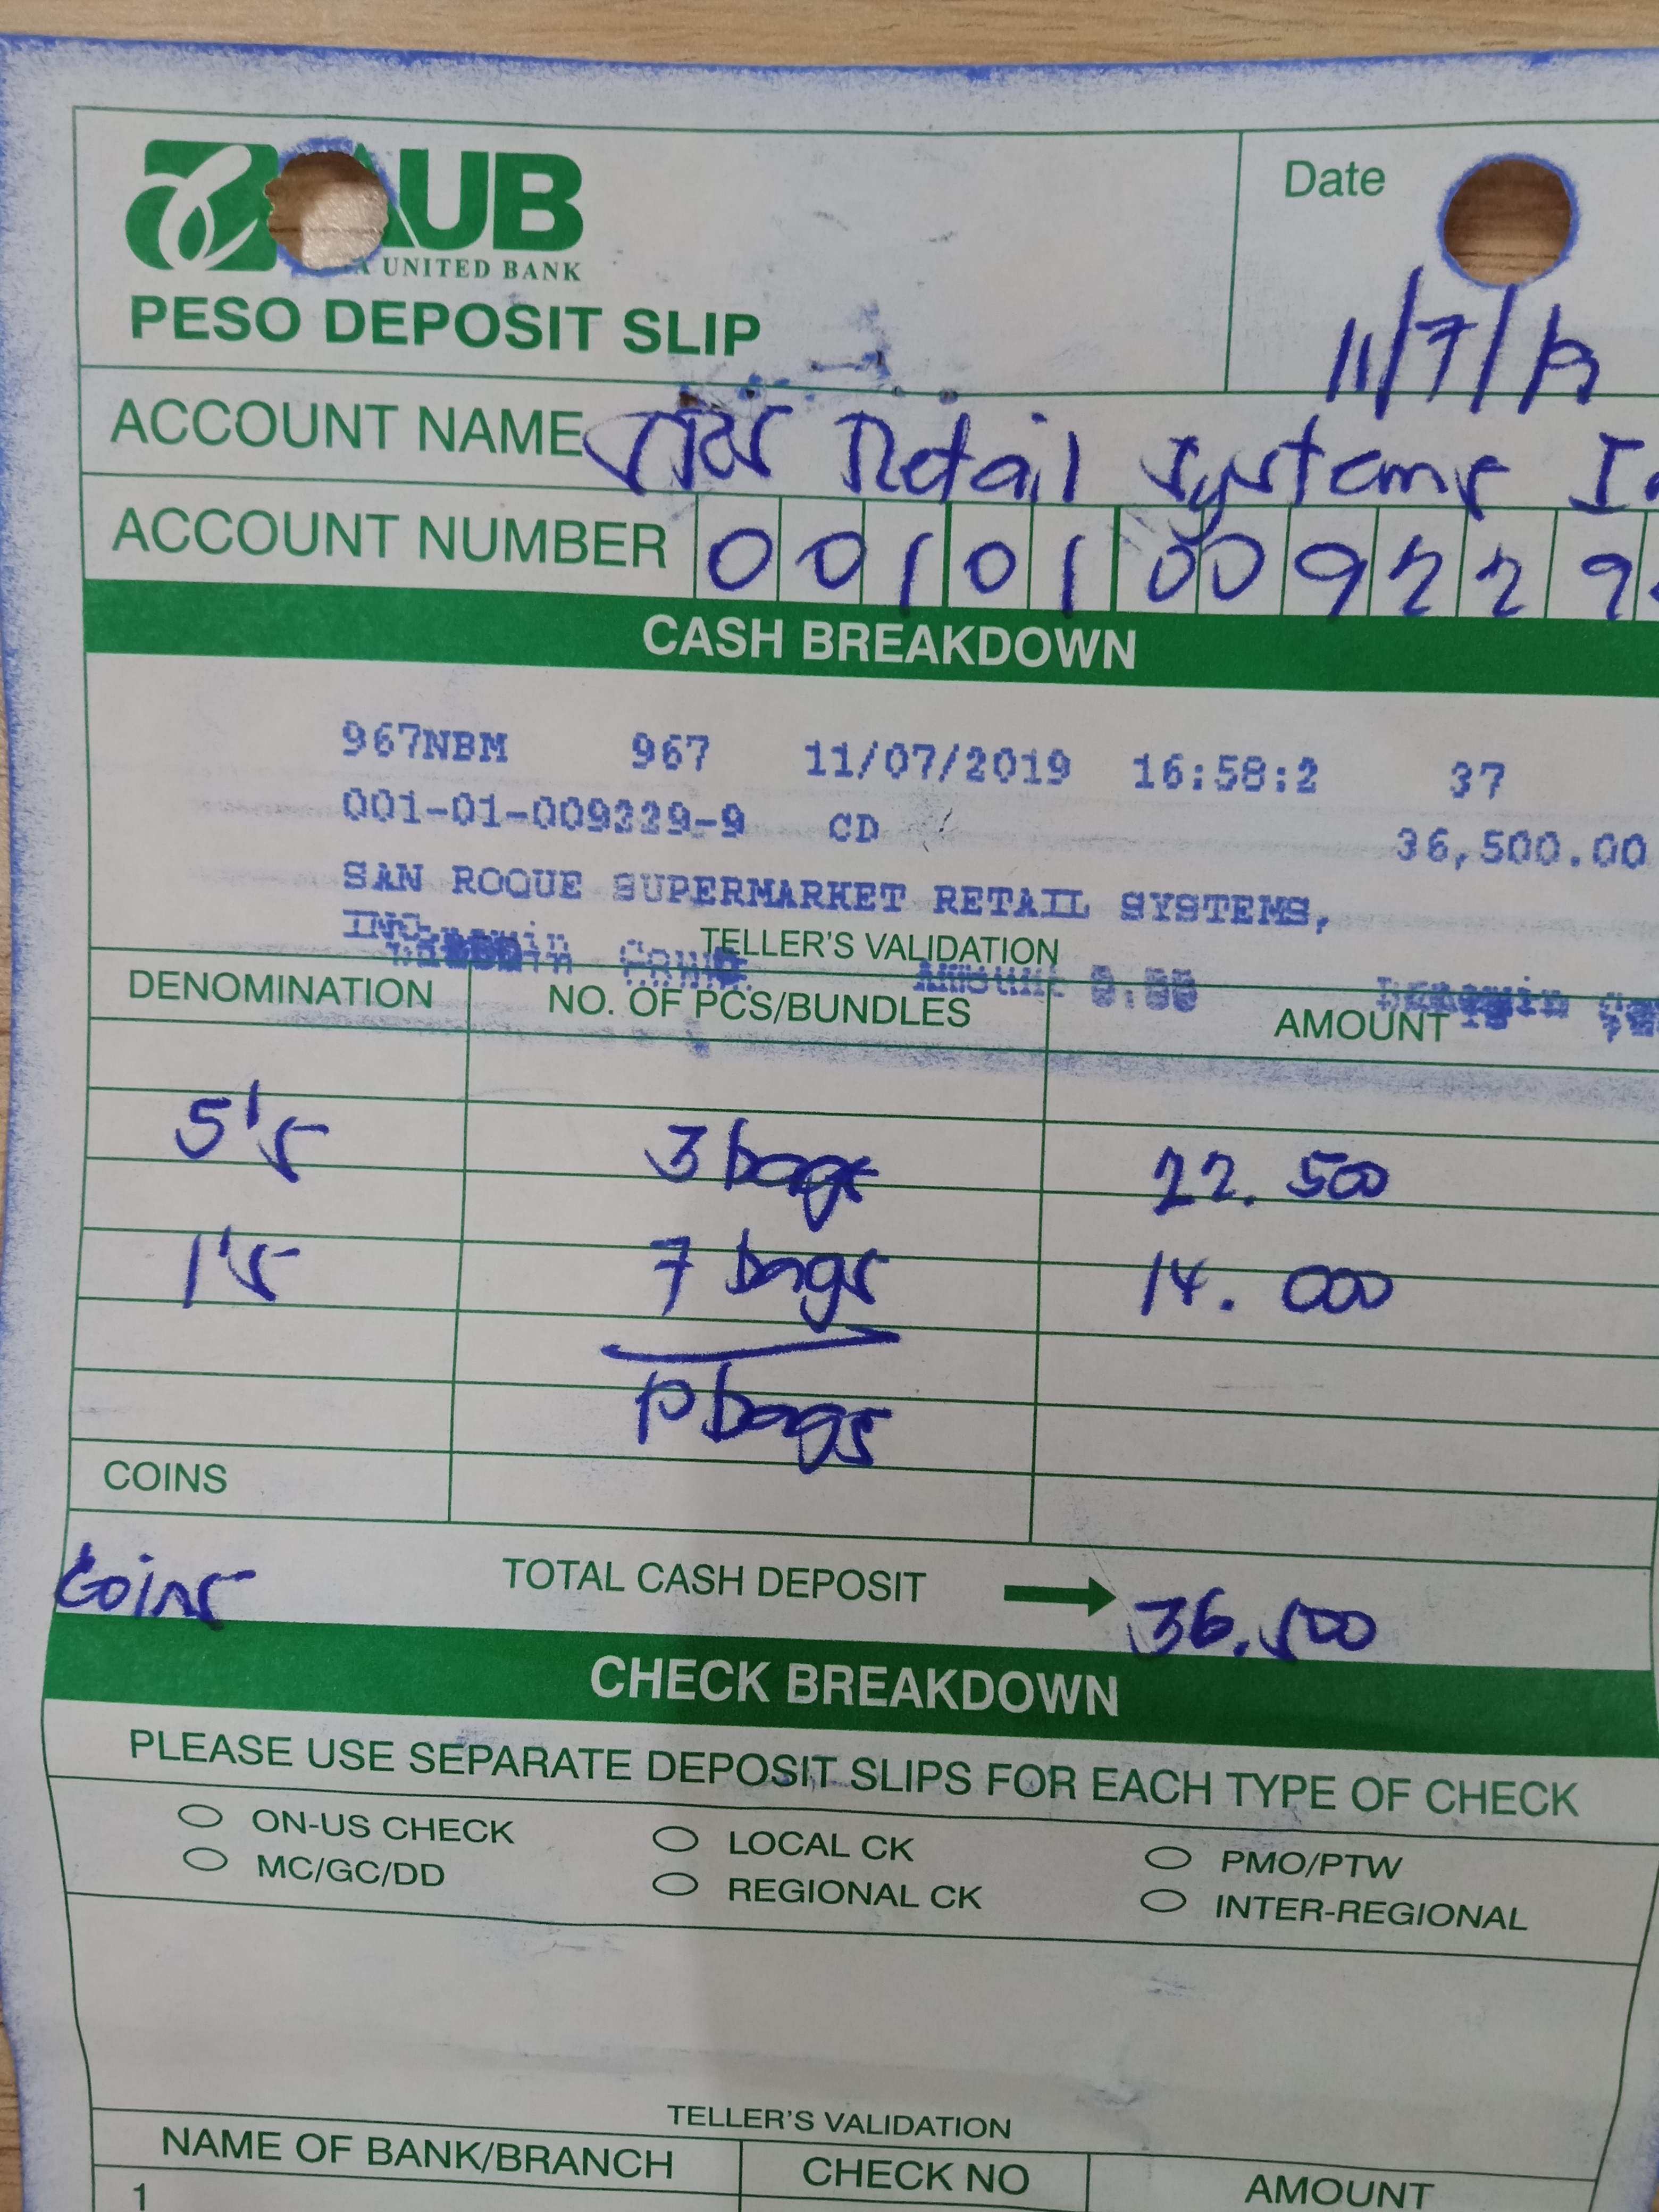 AUB
UNITED BANK
PESO DEPOSIT SLIP
Date
11/7/19
ACCOUNT NAME Retail Systems
ACCOUNT NUMBER 0 0 1 0 1 0 0 9 2 2 9
CASH BREAKDOWN
967NBM 967 11/07/2019 16:58:2 37
001-01-009229-9 CD 36,500.00
SAN ROQUE SUPERMARKET RETAIL SYSTEMS,
TELLER'S VALIDATION
DENOMINATION NO. OF PCS/BUNDLES AMOUNT
5's 3 bags 22.500
1's 7 bags 14.000
10 bags
COINS
Coins TOTAL CASH DEPOSIT 36.500
CHECK BREAKDOWN
PLEASE USE SEPARATE DEPOSIT SLIPS FOR EACH TYPE OF CHECK
ON-US CHECK LOCAL CK PMO/PTW
MC/GC/DD REGIONAL CK INTER-REGIONAL
TELLER'S VALIDATION
NAME OF BANK/BRANCH CHECK NO AMOUNT
1